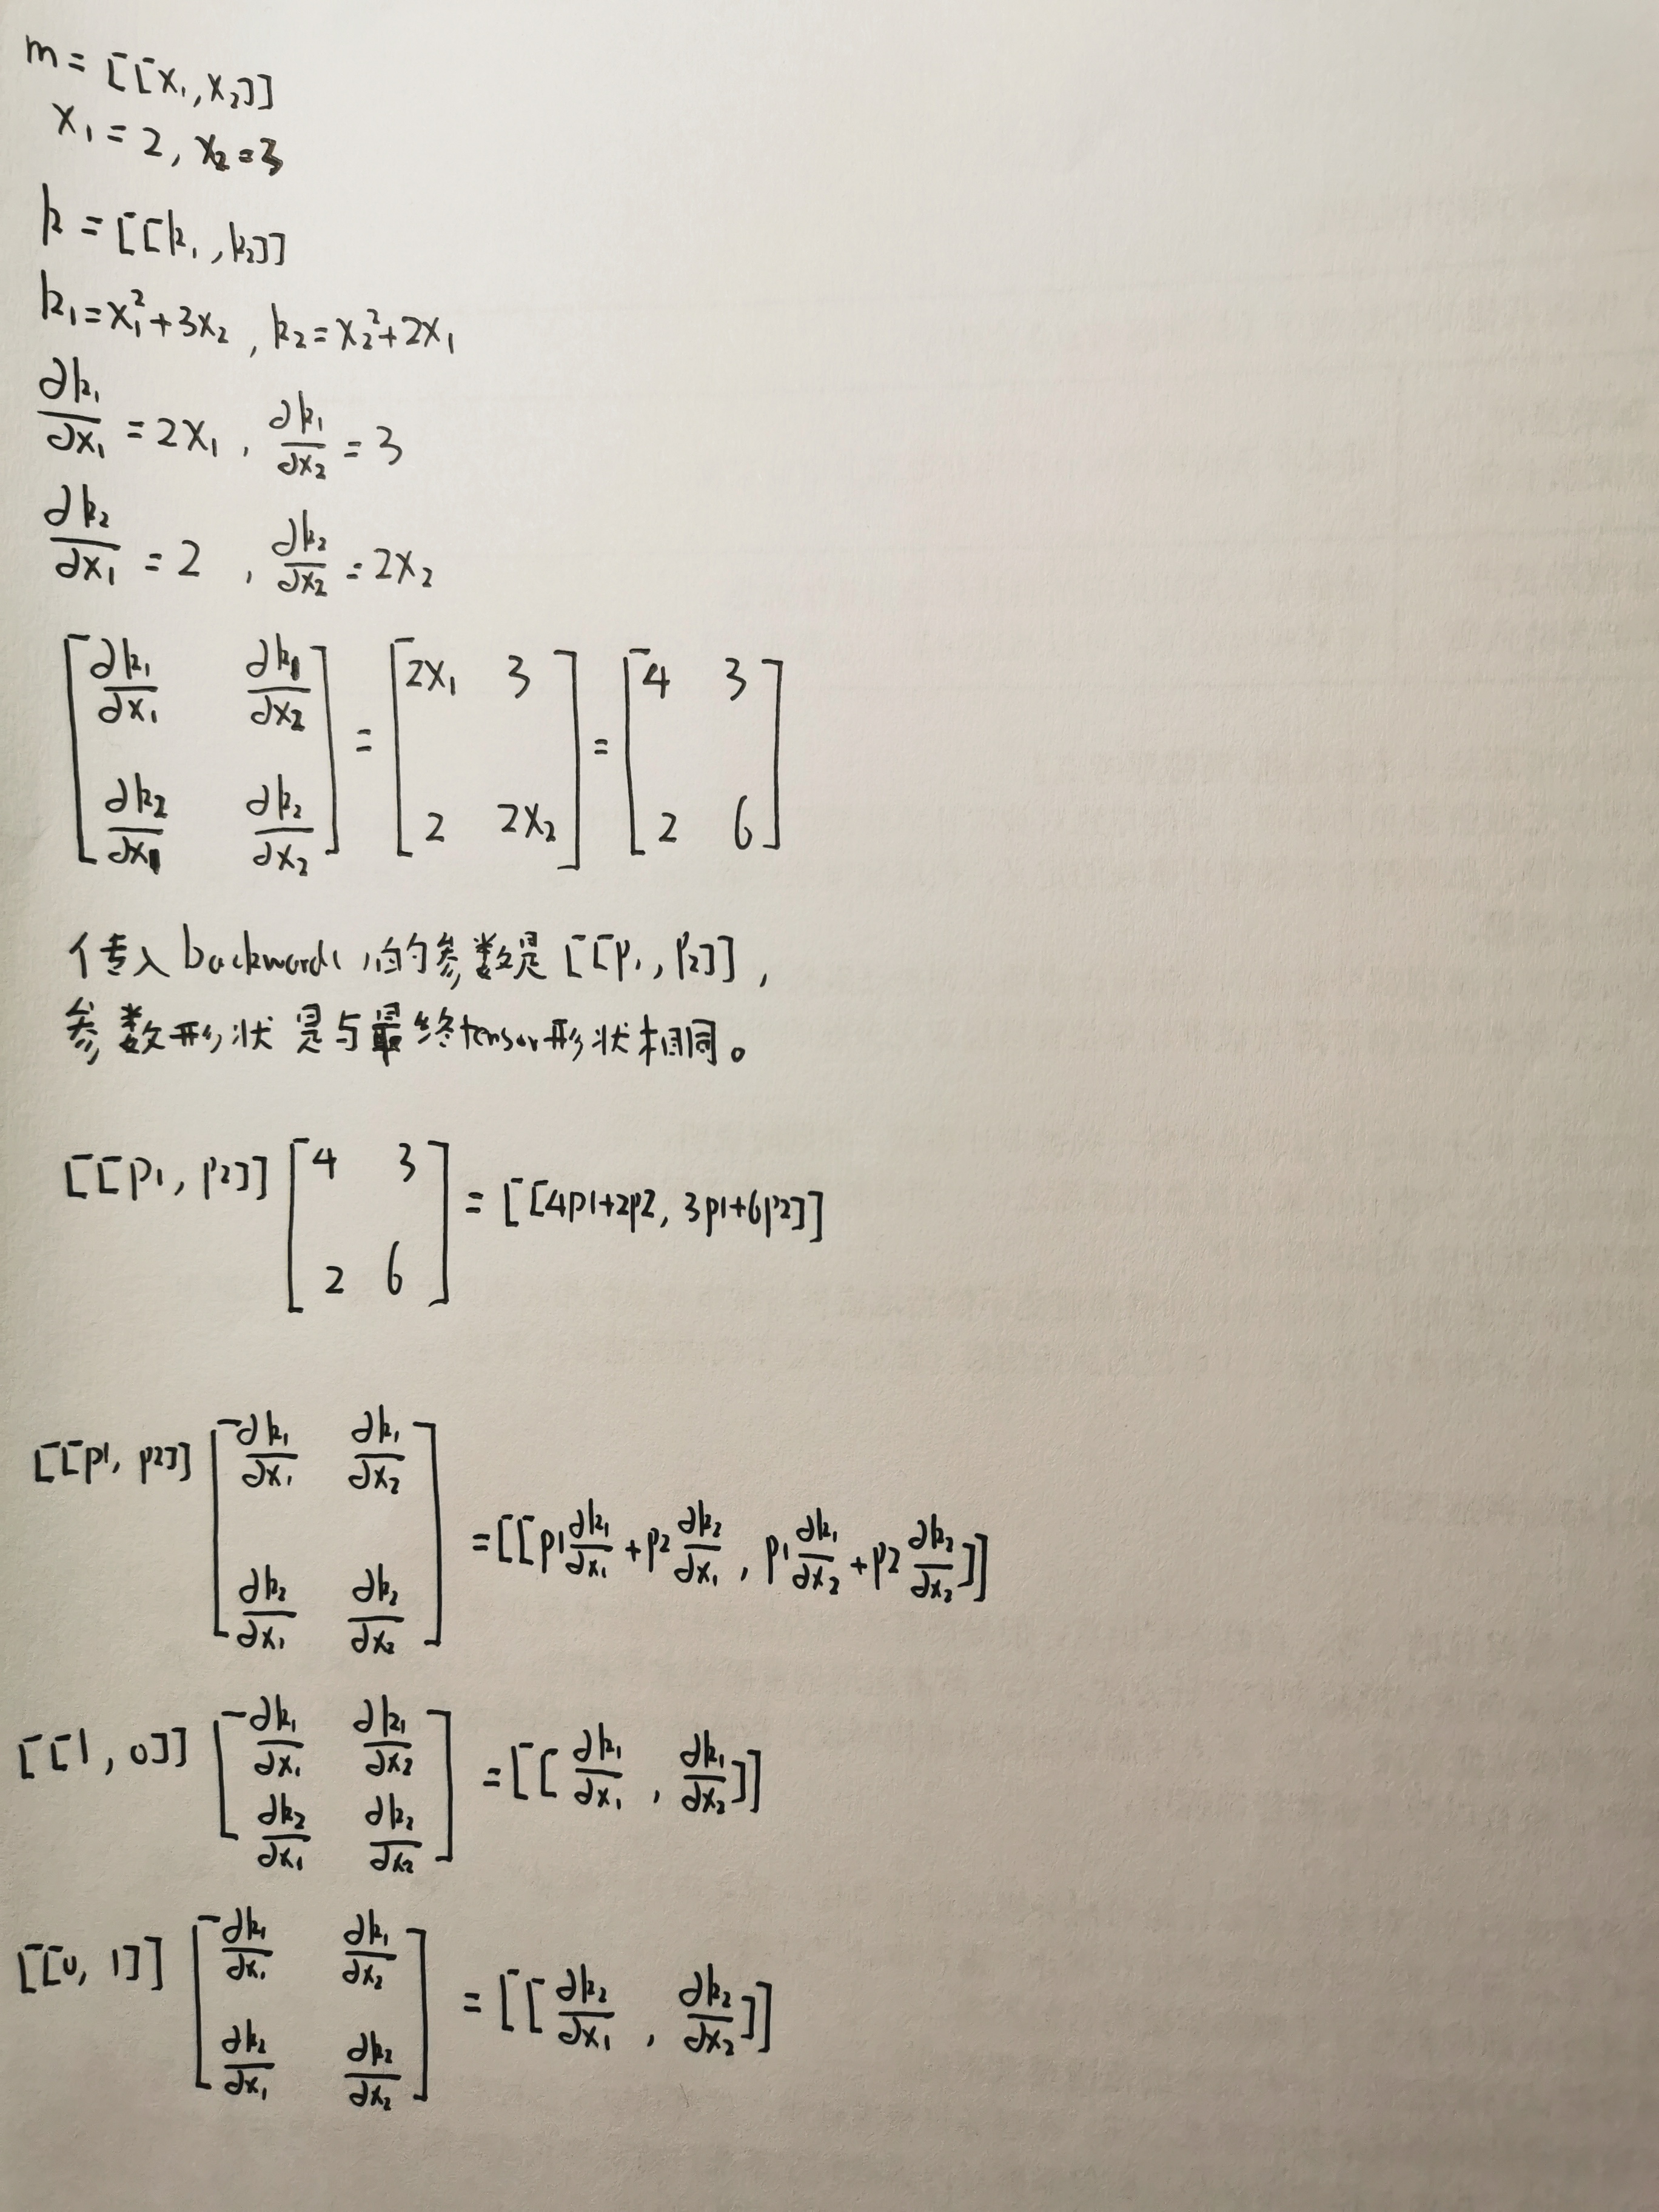 m = [[x₁, x₂]]
x₁ = 2, x₂ = 3
k = [[k₁, k₂]]
k₁ = x₁² + 3x₂, k₂ = x₂² + 2x₁
∂k₁/∂x₁ = 2x₁, ∂k₁/∂x₂ = 3
∂k₂/∂x₁ = 2, ∂k₂/∂x₂ = 2x₂
[∂k₁/∂x₁ ∂k₁/∂x₂; ∂k₂/∂x₁ ∂k₂/∂x₂] = [2x₁ 3; 2 2x₂] = [4 3; 2 6]
传入backward()的参数是[[p₁, p₂]],
参数形状是与最终tensor形状相同。
[[p1, p2]] [4 3; 2 6] = [[4p1+2p2, 3p1+6p2]]
[[p1, p2]] [∂k₁/∂x₁ ∂k₁/∂x₂; ∂k₂/∂x₁ ∂k₂/∂x₂] = [[p1 ∂k₁/∂x₁ + p2 ∂k₂/∂x₁, p1 ∂k₁/∂x₂ + p2 ∂k₂/∂x₂]]
[[1, 0]] [∂k₁/∂x₁ ∂k₁/∂x₂; ∂k₂/∂x₁ ∂k₂/∂x₂] = [[∂k₁/∂x₁, ∂k₁/∂x₂]]
[[0, 1]] [∂k₁/∂x₁ ∂k₁/∂x₂; ∂k₂/∂x₁ ∂k₂/∂x₂] = [[∂k₂/∂x₁, ∂k₂/∂x₂]]